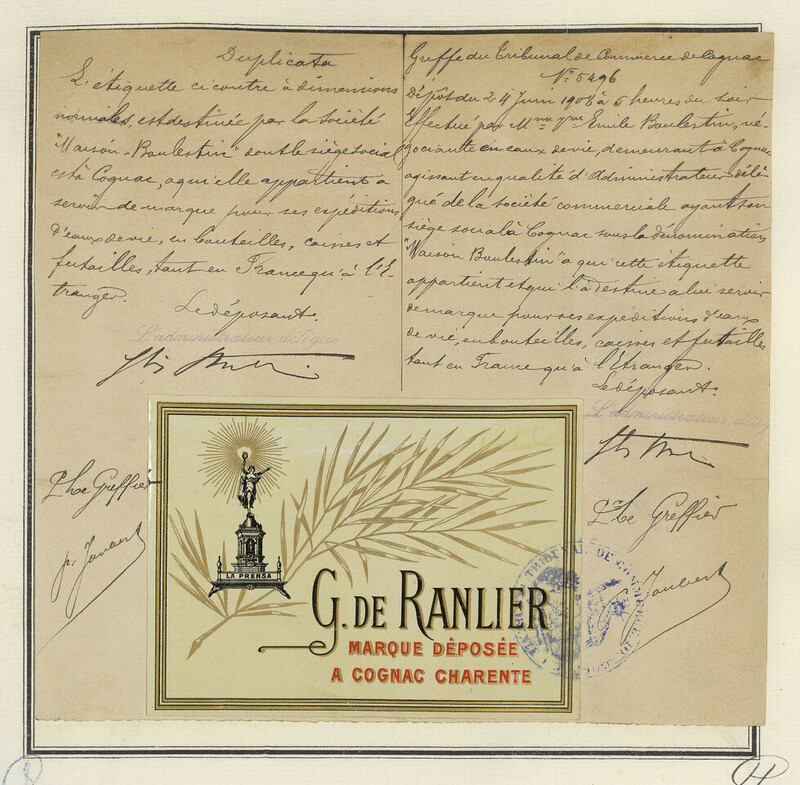 Duplicata
L'étiquette ci contre à dimensions
normales, est destinée par la Société
"Maison-Boulestin" dont le siège social
est à Cognac, a qui elle appartient a
servir de marque pour ses expéditions
d'eaux de vie, en bouteilles, caisses et
futailles, tant en France qu'à l'E-
tranger.
Le déposant.
L'administrateur délégué
Greffier
Greffe du Tribunal de Commerce de Cognac
N° 5496
Dépôt du 24 Juin 1908 à 5 heures du soir
Effectué par Emile Boulestin, né-
gociante en eaux de vie, demeurant à Cognac
agissant en qualité d'Administrateur délé-
gué de la société commerciale ayant son
siège social à Cognac sous la dénomination
"Maison Boulestin" a qui cette étiquette
appartient et qui l'a destine a lui servir
de marque pour ses expéditions d'eaux
de vie, en bouteilles, caisses et futailles
tant en France qu'à l'Etranger.
Le déposant.
L'administrateur délég
Greffier
Joubert
LA PRENSA
G. DE RANLIER
MARQUE DÉPOSÉE
A COGNAC CHARENTE
TRIBUNAL DE COMMERCE
H